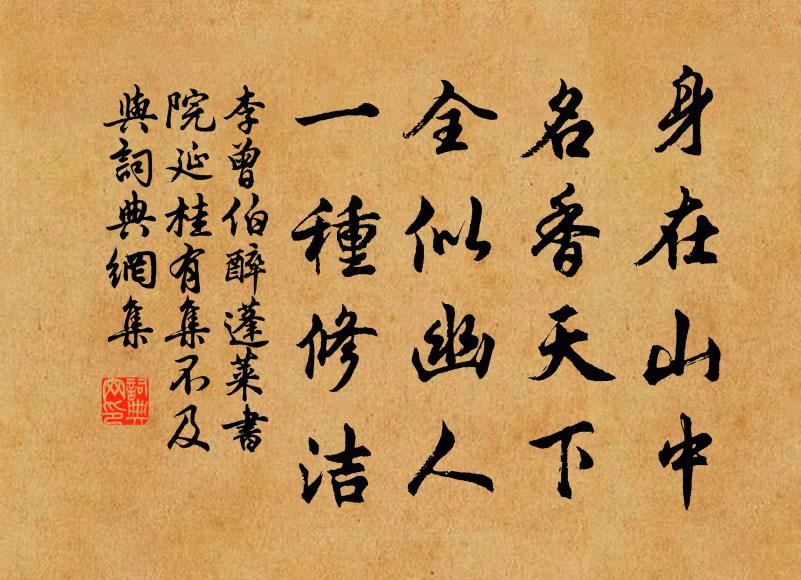 身在山中
名香天下
全似幽人
一種修洁
李曾伯醉蓬莱書
院延桂有集不及
與詞典網集
詞典網印